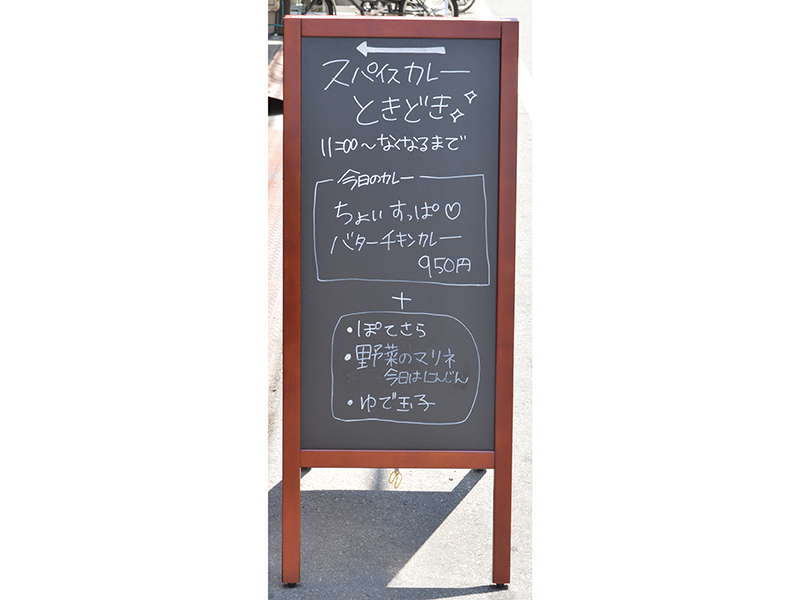 スパイスカレー
ときどき
11:00～なくなるまで
今日のカレー
ちょいすっぱ♡
バターチキンカレー
950円
+
・ぽてさら
・野菜のマリネ
今日はにんじん
・ゆで玉子